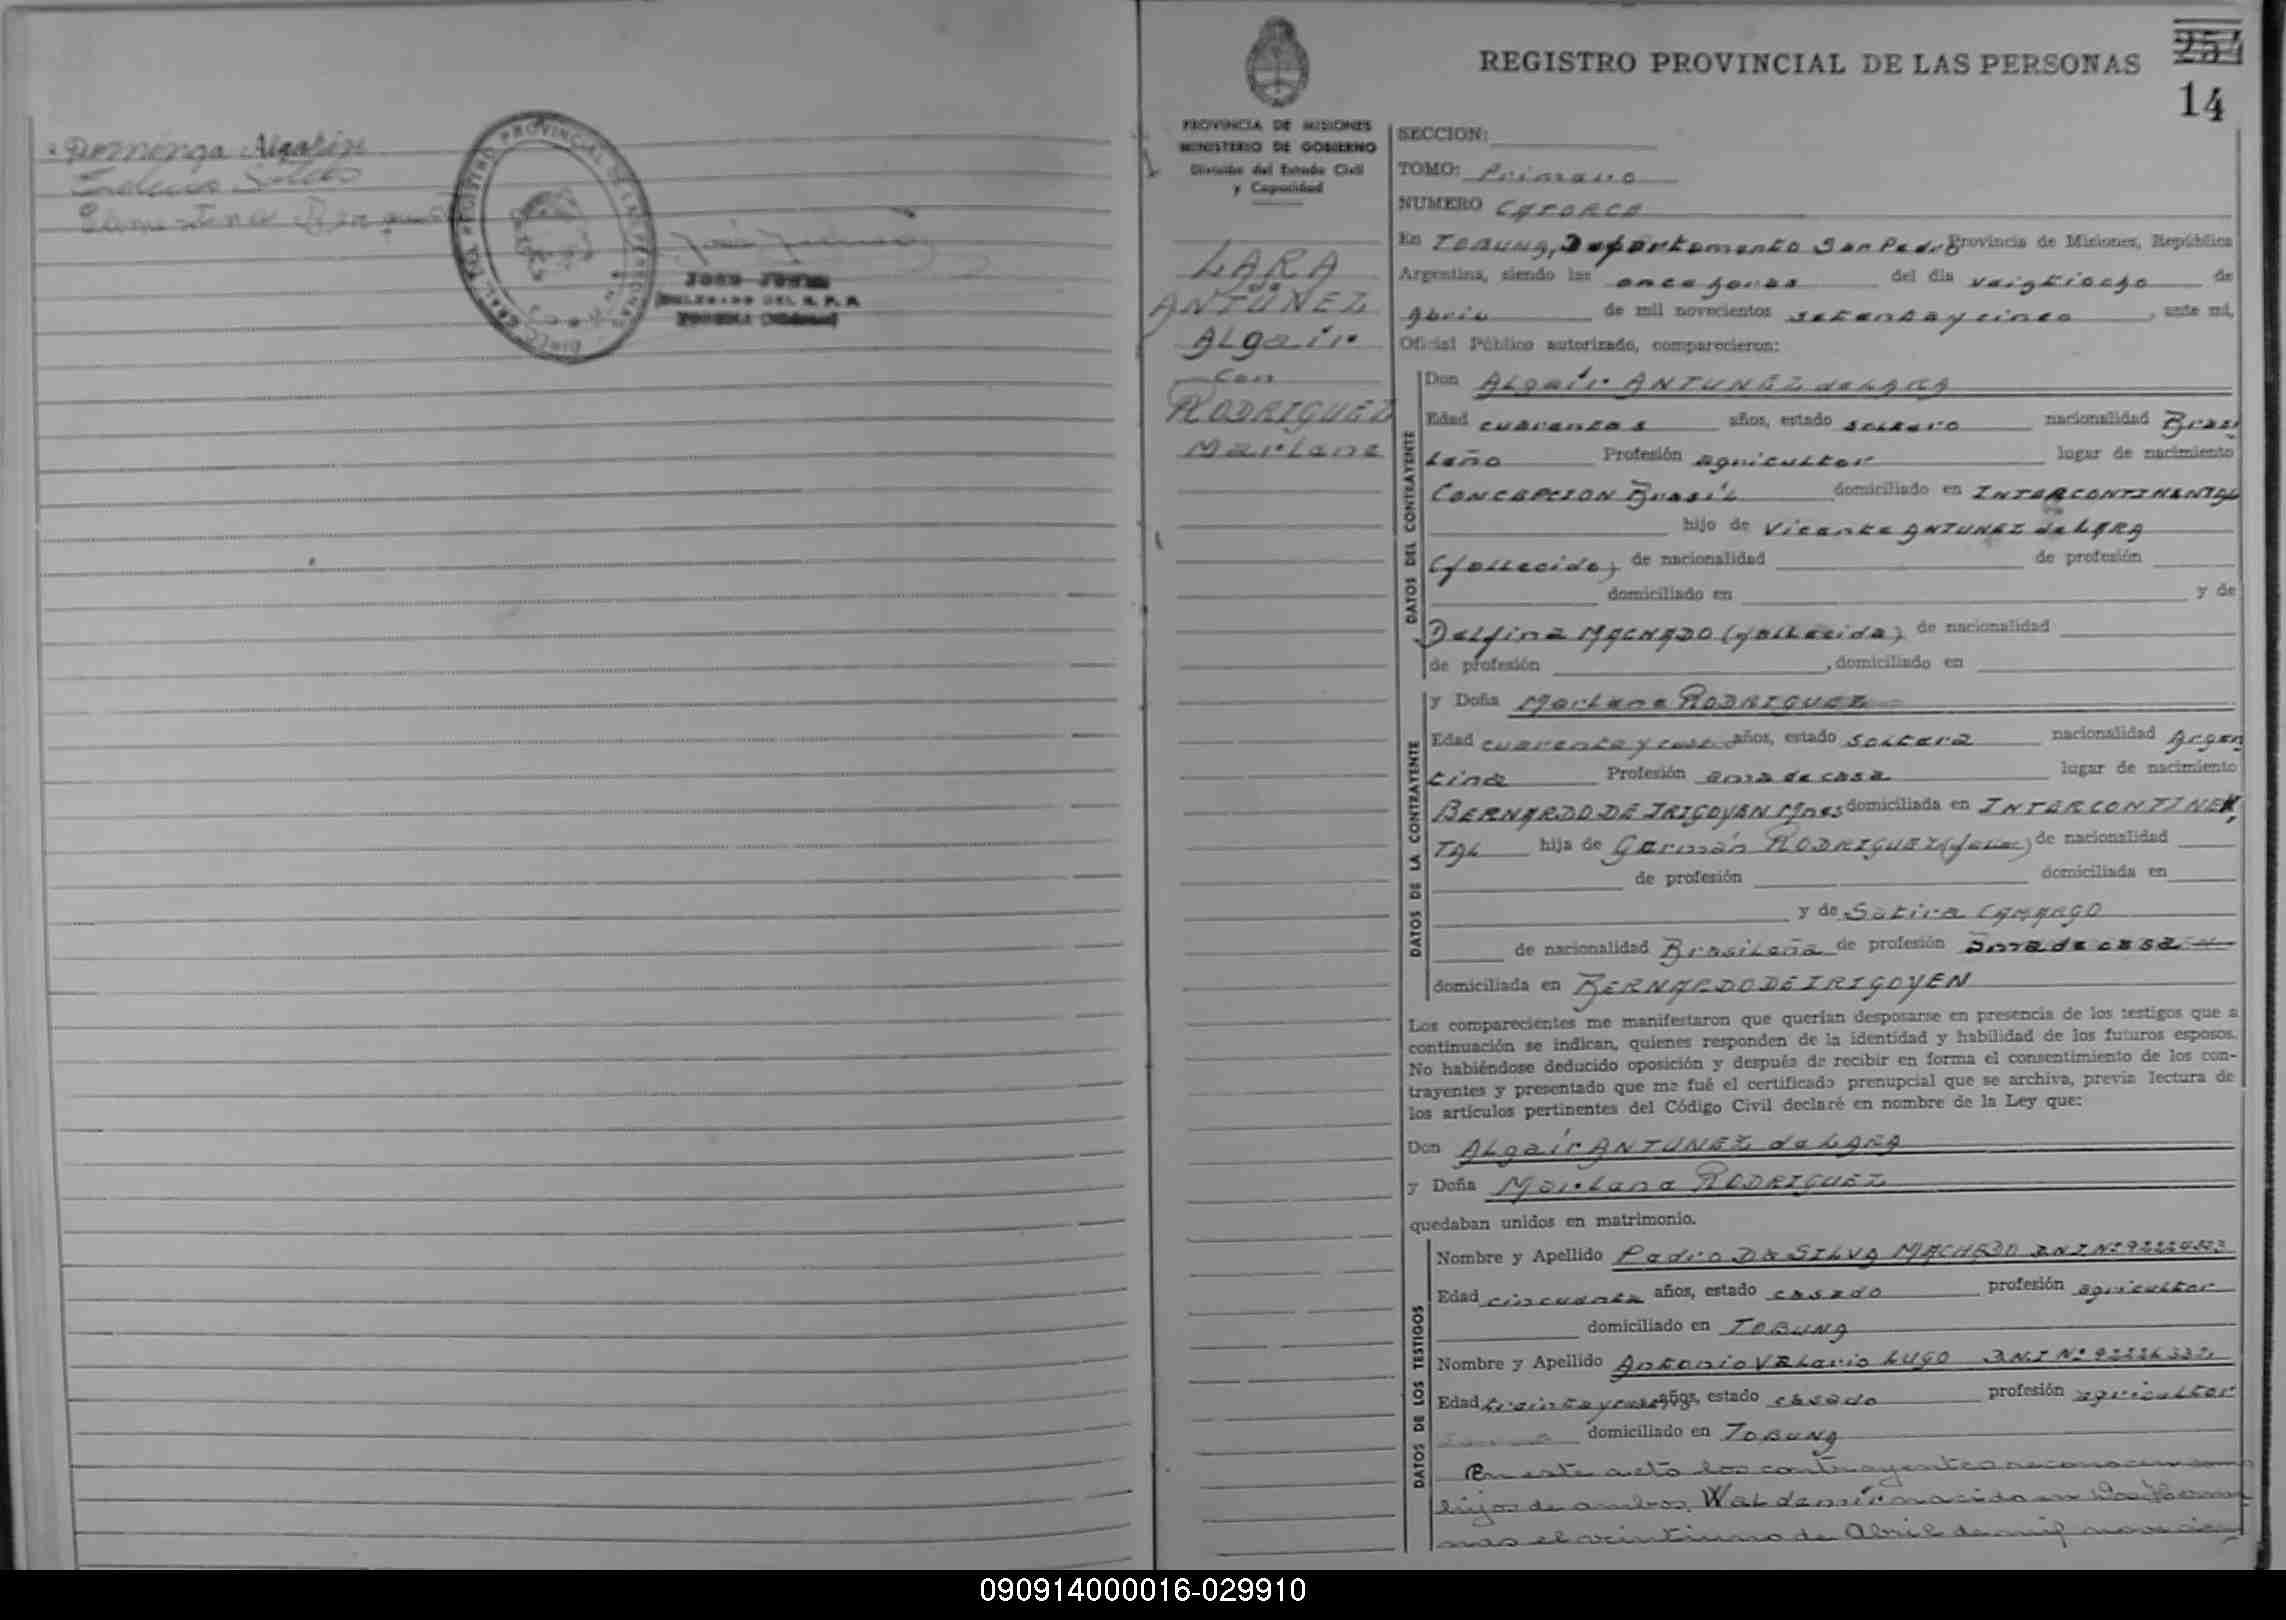 Dominga Algarin
DIREC. GRAL. DEL REGISTRO PROVINCIAL DE LAS PERSONAS
DELEGADO DEL R. P. P.
254
14
REGISTRO PROVINCIAL DE LAS PERSONAS
PROVINCIA DE MISIONES
MINISTERIO DE GOBIERNO
División del Estado Civil
y Capacidad
LARA
de
ANTUNEZ
ALgair
con
RODRIGUEZ
Marlane
SECCION:
TOMO: Primero
NUMERO CATORCE
En TOBUNA, Departamento San Pedro Provincia de Misiones, República
Argentina, siendo las once horas del día veigtiocho de
Abril de mil novecientos setenta y cinco, ante mí,
Oficial Público autorizado, comparecieron:
DATOS DEL CONTRAYENTE
Don ALgair ANTUNEZ de LARA
Edad cuarenta años, estado soltero nacionalidad Brasi
Leño Profesión agricultor lugar de nacimiento
CONCEPCION Brasil domiciliado en INTERCONTINENTAL
hijo de Vicente ANTUNEZ de LARA
(fallecido) de nacionalidad de profesión
domiciliado en y de
Delfina MACHADO (fallecida) de nacionalidad
de profesión , domiciliado en
DATOS DE LA CONTRAYENTE
y Doña Marlane RODRIGUEZ
Edad cuarenta y años, estado soltera nacionalidad Argen
tina Profesión ama de casa lugar de nacimiento
BERNARDO DE IRIGOYEN Mnes domiciliada en INTERCONTINEN,
TAL hija de Germán RODRIGUEZ (fallec) de nacionalidad
de profesión domiciliada en
y de Sativa CAMARGO
de nacionalidad Brasileña de profesión ama de casa
domiciliada en BERNARDO DE IRIGOYEN
Los comparecientes me manifestaron que querían desposarse en presencia de los testigos que a
continuación se indican, quienes responden de la identidad y habilidad de los futuros esposos.
No habiéndose deducido oposición y después de recibir en forma el consentimiento de los con-
trayentes y presentado que me fué el certificado prenupcial que se archiva, previa lectura de
los artículos pertinentes del Código Civil declaré en nombre de la Ley que:
Don ALgair ANTUNEZ de LARA
y Doña Marlane RODRIGUEZ
quedaban unidos en matrimonio.
DATOS DE LOS TESTIGOS
Nombre y Apellido Pedro DA SILVA MACHADO DNI Nº
Edad cincuenta años, estado casado profesión agricultor
domiciliado en TOBUNA
Nombre y Apellido Antonio VALerio LUGO DNI Nº
Edad treinta y años, estado casado profesión agricultor
domiciliado en TOBUNA
En este acto los contrayentes reconocen como
hijos de ambos, Waldemir nacido en Dos Herma
nas el veintiuno de Abril de mil novecien
090914000016-029910